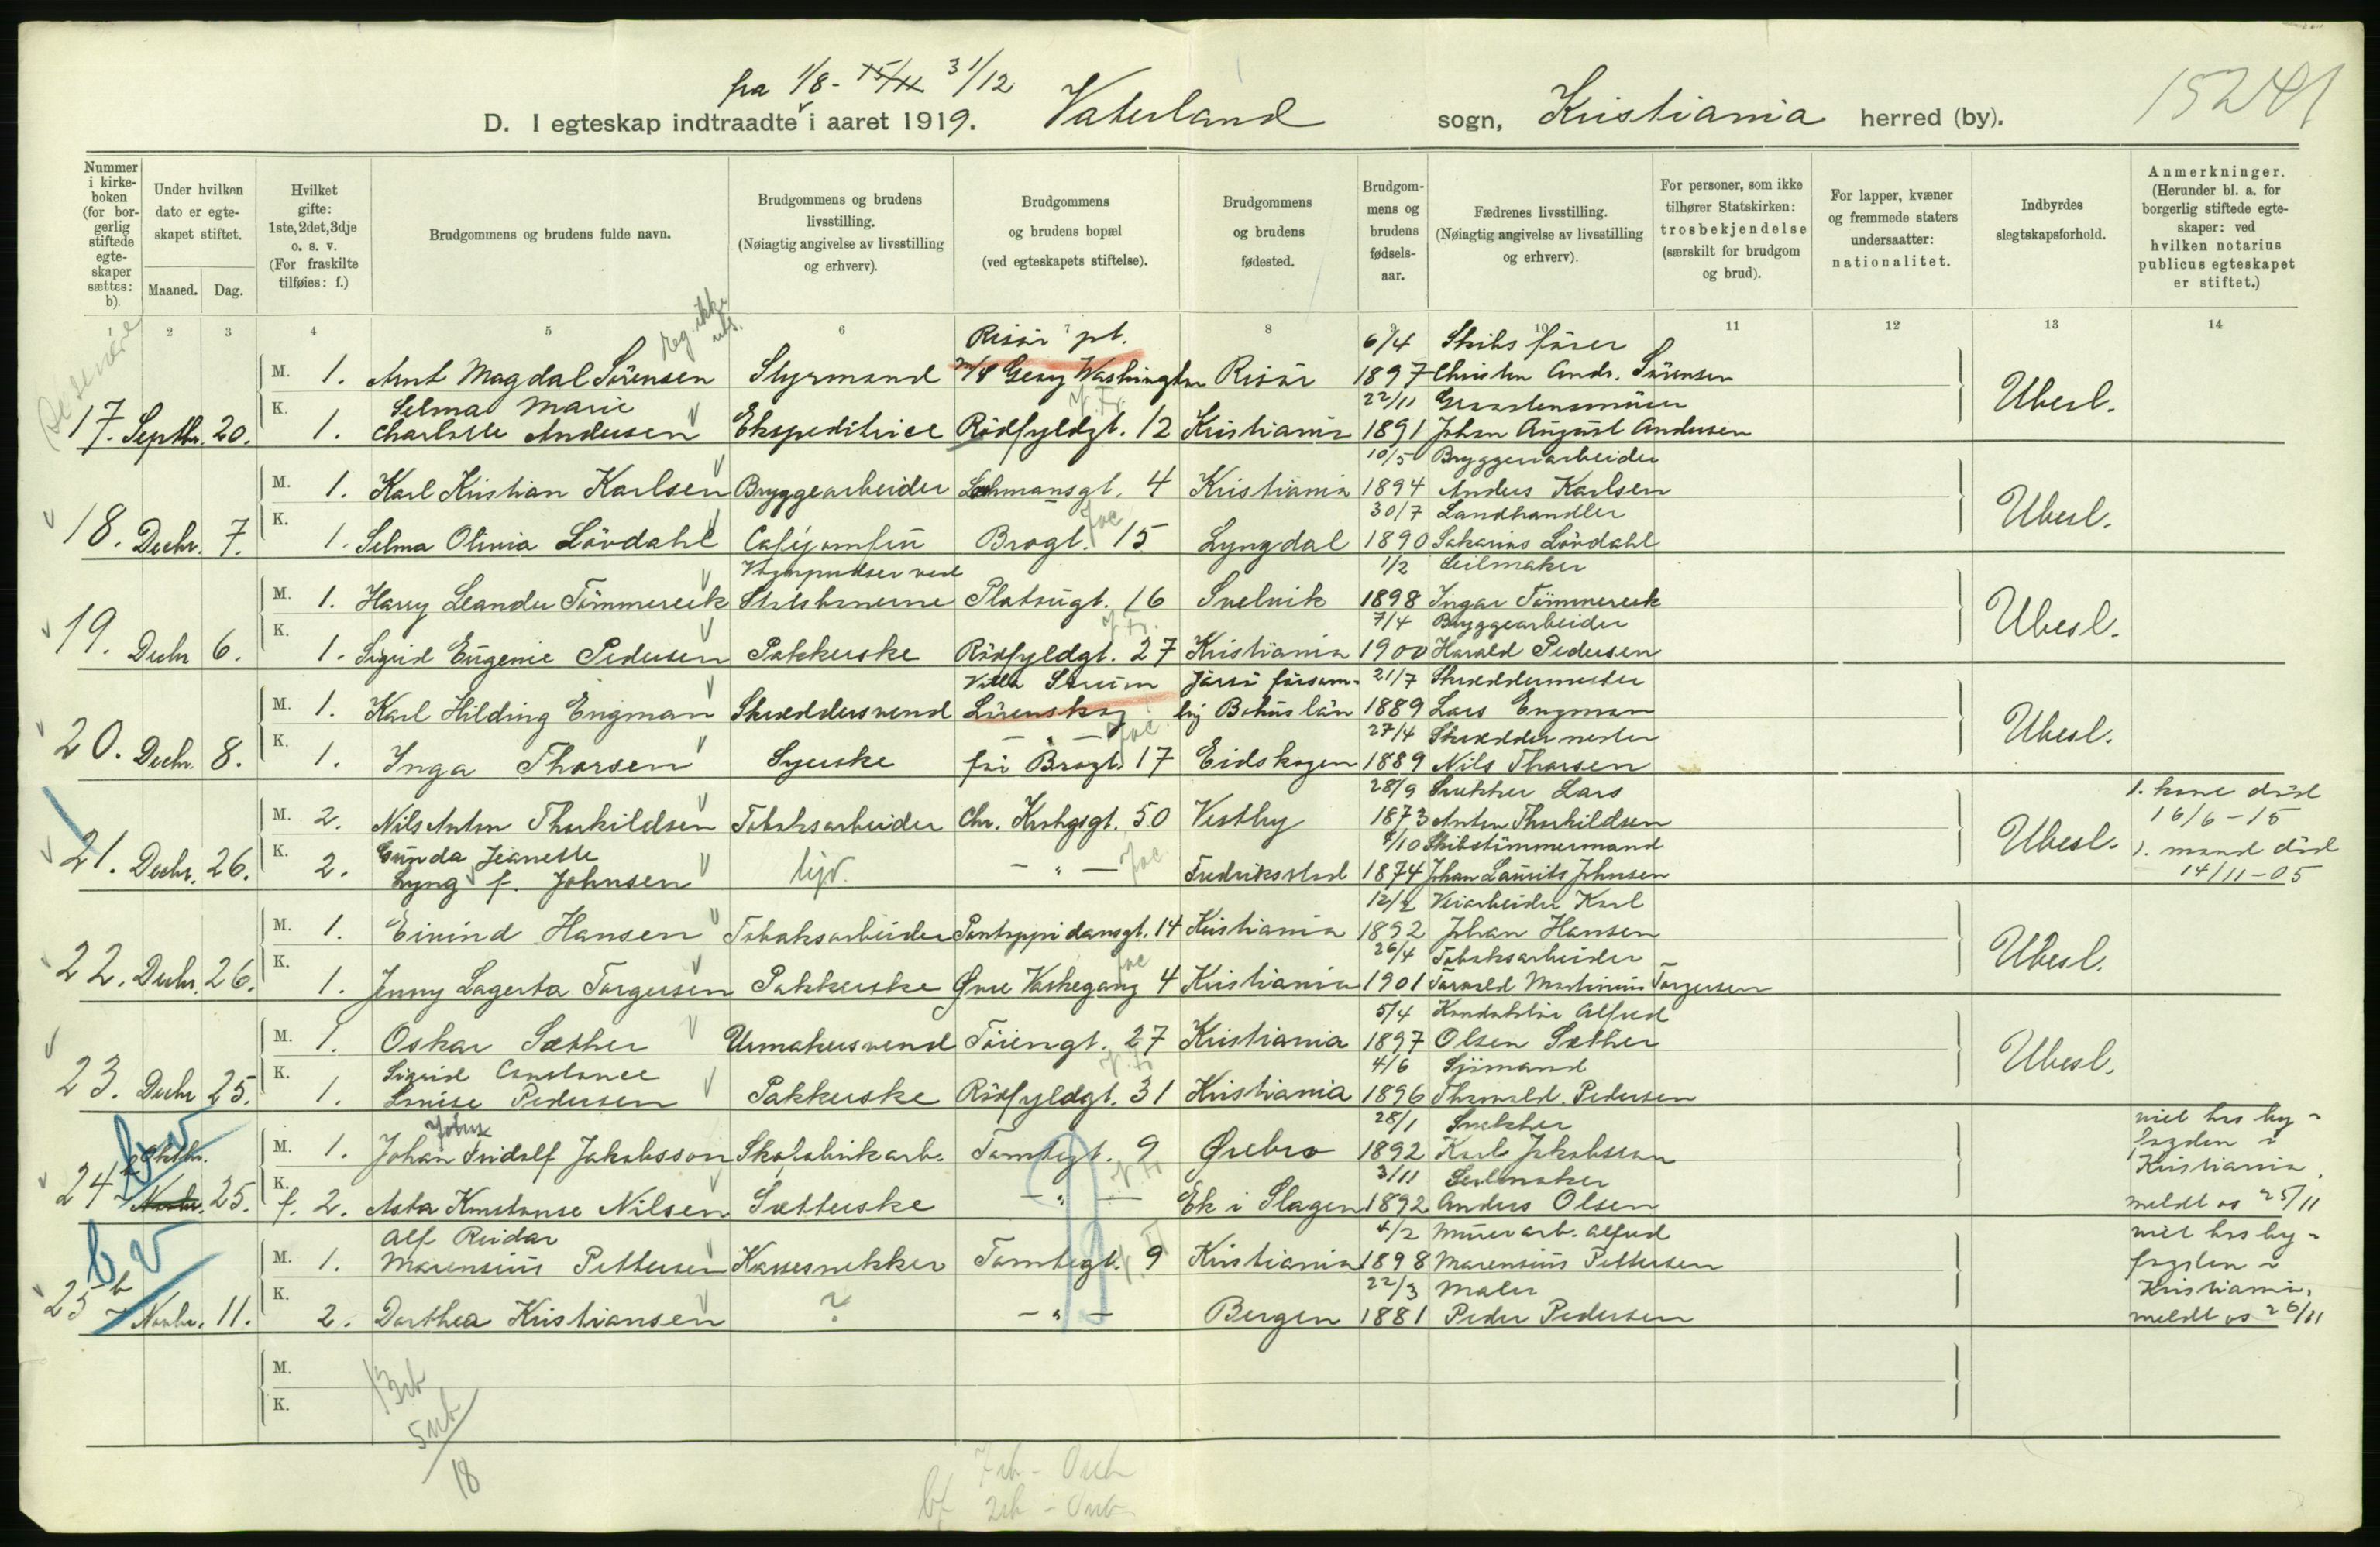 fra 1/8 - 15/11 31/12
D. I egteskap indtraadte i aaret 1919. Vaterland sogn, Kristiania herred (by).
Nummer i kirkeboken (for borgerlig stiftede egteskaper sættes: b).
Under hvilken dato er egteskapet stiftet.
Maaned. Dag.
Hvilket gifte: 1ste, 2det, 3dje o. s. v. (For fraskilte tilføies: f.)
Brudgommens og brudens fulde navn.
Brudgommens og brudens livsstilling. (Nøiagtig angivelse av livsstilling og erhverv).
Brudgommens og brudens bopæl (ved egteskapets stiftelse).
Brudgommens og brudens fødested.
Brudgommens og brudens fødselsaar.
Fædrenes livsstilling. (Nøiagtig angivelse av livsstilling og erhverv).
For personer, som ikke tilhører Statskirken: trosbekjendelse (særskilt for brudgom og brud).
For lapper, kvæner og fremmede staters undersaatter: nationalitet.
Indbyrdes slegtskapsforhold.
Anmerkninger. (Herunder bl. a. for borgerlig stiftede egteskaper: ved hvilken notarius publicus egteskapet er stiftet.)
1 2 3 4 5 6 7 8 9 10 11 12 13 14
Risör pt. 6/4 Skibsförer
M. 1. Arnt Magdal Sörensen Styrmand Georg Washington Risör 1897 Christen Andr. Sörensen
Selma Marie 22/11
17. Septbr. 20. K. 1. Charlotte Andersen Ekspeditrice Rödfyldgt. 12 Kristiania 1891 Johan August Andersen
10/5 Bryggeriarbeider
M. 1. Karl Kristian Karlsen Bryggearbeider Lakmansgt. 4 Kristiania 1894 Anders Karlsen
30/7 Landhandler
18. Decbr. 7. K. 1. Selma Olivia Lövdahl Caféjomfru Brogt. 15 Lyngdal 1890 Sakarias Lövdahl
Vognpudser ved 1/2 Seilmaker
M. 1. Harry Leander Tömmereek Statsbanerne Platougt. 16 Svelvik 1898 Ingar Tömmereek
7/4 Bryggearbeider
19. Decbr 6. K. 1. Sigrid Eugenie Pedersen Pakkerske Rödfyldgt. 27 Kristiania 1900 Harald Pedersen
Villa Sörum 21/7 Skræddermester
M. 1. Karl Hilding Engman Skræddersvend Lörenskog Bohuslän 1889 Lars Engman
27/4 Skræddermester
20. Decbr. 8. K. 1. Inga Thorsen Syerske för Brogt. 17 Eidskogen 1889 Nils Thorsen
28/9 Snekker Lars 1. kone död
M. 2. Nils Anton Thorkildsen Tobaksarbeider Chr. Krohgsgt. 50 Vestby 1873 Anton Thorkildsen 16/6 - 15
Gunda Jeanette 4/10 Skibstömmermand 1. mand död
21. Decbr. 26. K. 2. Lyng f. Johnsen - " - Fredriksstad 1874 Johan Laurits Johnsen 14/11 - 05
12/2 Veiarbeider Karl
M. 1. Eivind Hansen Tobaksarbeider Pontoppidansgt. 14 Kristiania 1892 Johan Hansen
26/4 Tobaksarbeider
22. Decbr. 26. K. 1. Jenny Lagerta Torgersen Pakkerske Øvre Vaskegang 4 Kristiania 1901 Torvald Martinius Torgersen
5/4 Konduktör Alfred
M. 1. Oskar Sæther Urmakersvend Töiengt. 27 Kristiania 1897 Olsen Sæther
Sigrid Constance 4/6 Sjömand
23. Decbr 25. K. 1. Louise Pedersen Pakkerske Rödfyldgt. 31 Kristiania 1896 Thorvald Pedersen
28/1 Snekker viet hos by-
Oktbr. M. 1. Johan Fridolf Jakobsson Skofabrikarb. Tomtegt. 9 Ørebro 1892 Karl Jakobsson fogden i
3/11 Seilmaker Kristiania,
24 b Novbr. 25. K. f. 2. Asta Konstanse Nilsen Sætterske - " - Ek i Slagen 1892 Anders Olsen meldt os 25/11
Alf Reidar 4/2 Murerarb. Alfred viet hos by-
M. 1. Marensius Pettersen Kassesnekker Tomtegt. 9 Kristiania 1898 Marensius Pettersen fogden i
22/3 Maler Kristiania,
25 b Novbr. 11. K. 2. Dorthea Kristiansen ? - " - Bergen 1881 Peder Pedersen meldt os 26/11
Ubesl.
Ubesl.
Ubesl.
Ubesl.
Ubesl.
Ubesl.
Ubesl.
M.
K.
18